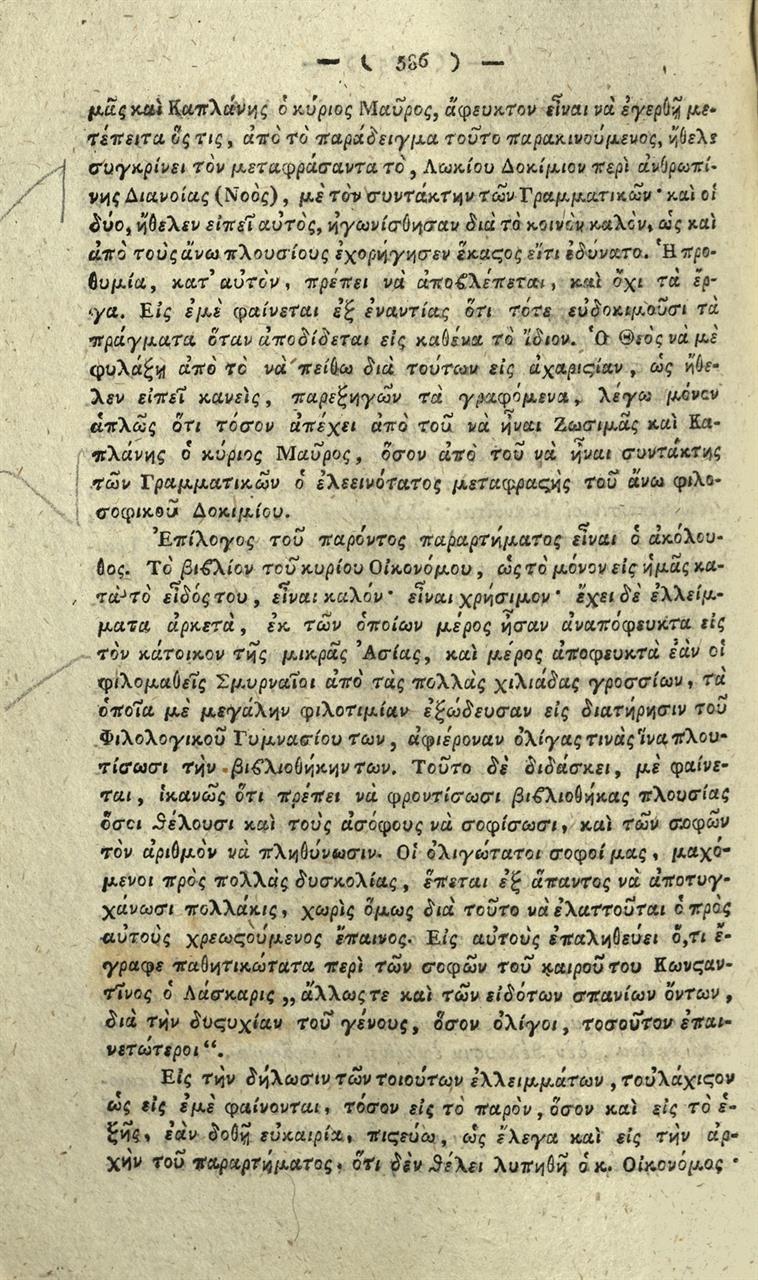 — ( 586 ) —
μᾶς καὶ Καπλάνης ὁ κύριος Μαῦρος, ἄφευκτον εἶναι νὰ ἐγερθῇ με-
τέπειτα ὅς τις, ἀπὸ τὸ παράδειγμα τοῦτο παρακινούμενος, ἤθελε
συγκρίνει τὸν μεταφράσαντα τὸ, Λωκίου Δοκίμιον περὶ ἀνθρωπί-
νης Διανοίας (Νοὸς), μὲ τὸν συντάκτην τῶν Γραμματικῶν· καὶ οἱ
δύο, ἤθελεν εἰπεῖ αὐτὸς, ἠγωνίσθησαν διὰ τὸ κοινὸν καλὸν, ὡς καὶ
ἀπὸ τοὺς ἄνω πλουσίους ἐχορήγησεν ἕκαϛος εἴτι ἐδύνατο. Ἡ προ-
θυμία, κατ' αὐτὸν, πρέπει νὰ ἀποβλέπεται, καὶ ὄχι τὰ ἔρ-
γα. Εἰς ἐμὲ φαίνεται ἐξ ἐναντίας ὅτι τότε εὐδοκιμοῦσι τὰ
πράγματα ὅταν ἀποδίδεται εἰς καθένα τὸ ἴδιον. Ὁ Θεὸς νὰ μὲ
φυλάξῃ ἀπὸ τὸ νὰ πείθω διὰ τούτων εἰς ἀχαριϛίαν, ὡς ἤθε-
λεν εἰπεῖ κανεὶς, παρεξηγῶν τὰ γραφόμενα, λέγω μόνον
ἁπλῶς ὅτι τόσον ἀπέχει ἀπὸ τοῦ νὰ ἦναι Ζωσιμᾶς καὶ Κα-
πλάνης ὁ κύριος Μαῦρος, ὅσον ἀπὸ τοῦ νὰ ἦναι συντάκτης
τῶν Γραμματικῶν ὁ ἐλεεινότατος μεταφραϛὴς τοῦ ἄνω φιλο-
σοφικοῦ Δοκιμίου.
Ἐπίλογος τοῦ παρόντος παραρτήματος εἶναι ὁ ἀκόλου-
θος. Τὸ βιβλίον τοῦ κυρίου Οἰκονόμου, ὡς τὸ μόνον εἰς ἡμᾶς κα-
τὰ τὸ εἶδός του, εἶναι καλόν· εἶναι χρήσιμον· ἔχει δὲ ἐλλείμ-
ματα ἀρκετὰ, ἐκ τῶν ὁποίων μέρος ἦσαν ἀναπόφευκτα εἰς
τὸν κάτοικον τῆς μικρᾶς Ἀσίας, καὶ μέρος ἀποφευκτὰ ἐὰν οἱ
φιλομαθεῖς Σμυρναῖοι ἀπὸ τὰς πολλὰς χιλιάδας γροσσίων, τὰ
ὁποῖα μὲ μεγάλην φιλοτιμίαν ἐξώδευσαν εἰς διατήρησιν τοῦ
Φιλολογικοῦ Γυμνασίου των, ἀφιέροναν ὀλίγας τινὰς ἵνα πλου-
τίσωσι τὴν βιβλιοθήκην των. Τοῦτο δὲ διδάσκει, μὲ φαίνε-
ται, ἱκανῶς ὅτι πρέπει νὰ φροντίσωσι βιβλιοθήκας πλουσίας
ὅσοι θέλουσι καὶ τοὺς ἀσόφους νὰ σοφίσωσι, καὶ τῶν σοφῶν
τὸν ἀριθμὸν νὰ πληθύνωσιν. Οἱ ὀλιγώτατοι σοφοί μας, μαχό-
μενοι πρὸς πολλὰς δυσκολίας, ἕπεται ἐξ ἅπαντος νὰ ἀποτυγ-
χάνωσι πολλάκις, χωρὶς ὅμως διὰ τοῦτο νὰ ἐλαττοῦται ὁ πρὸς
αὐτοὺς χρεωϛούμενος ἔπαινος. Εἰς αὐτοὺς ἐπαληθεύει ὅ,τι ἔ-
γραφε παθητικώτατα περὶ τῶν σοφῶν τοῦ καιροῦ του Κωνϛαν-
τῖνος ὁ Λάσκαρις „ἄλλως τε καὶ τῶν εἰδότων σπανίων ὄντων,
διὰ τὴν δυϛυχίαν τοῦ γένους, ὅσον ὀλίγοι, τοσοῦτον ἐπαι-
νετώτεροι“.
Εἰς τὴν δήλωσιν τῶν τοιούτων ἐλλειμμάτων, τοὐλάχιϛον
ὡς εἰς ἐμὲ φαίνονται, τόσον εἰς τὸ παρὸν, ὅσον καὶ εἰς τὸ ἑ-
ξῆς, ἐὰν δοθῇ εὐκαιρία, πιϛεύω, ὡς ἔλεγα καὶ εἰς τὴν ἀρ-
χὴν τοῦ παραρτήματος, ὅτι δὲν θέλει λυπηθῆ ὁ κ. Οἰκονόμος·